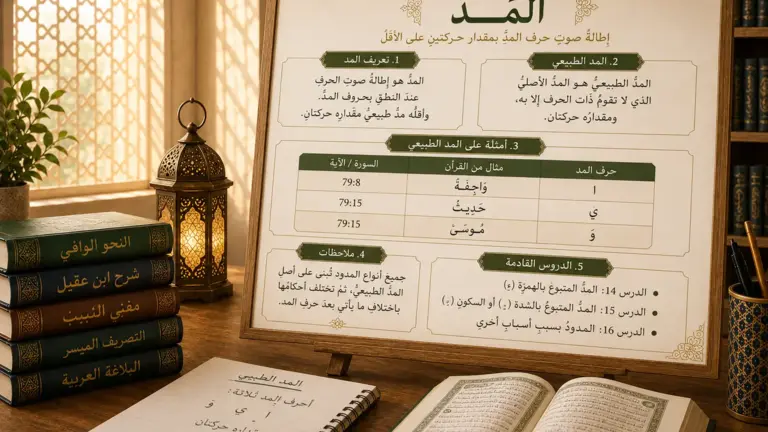 المَـد
إِطالةُ صوتِ حرف المدِّ بمقدار حـركتينِ على الأقلّ
1. تعريف المد
المدُّ هو إطالةُ صوتِ الحرف
عندَ النطقِ بحروف المدِّ.
وأقلُّه مدٌّ طبيعيٌّ مقدارِه حركتانِ.
2. المد الطبيعي
المدُّ الطبيعيُّ هـو المدُّ الأصليُّ
الذي لا تقومُ ذَات الحرف إلا به،
ومقدارُه حركتان.
3. أمثلة على المد الطبيعي
حرف المد مثال من القرآن السورة / الآية
ا وَاجِفَـةٌ 79:8
ي حَدِيثُ 79:15
وَ مُـوسَىٰ 79:15
4. ملاحظات
جميع أنواع المدود تُبنى على أصل
المدّ الطبيعيِّ، ثمّ تختلف أحكامُها
باختلافِ ما يأتي بعدَ حرف المد.
5. الدروس القادمة
الدرس 14: المدُّ المتبوعُ بالهمزة (ء)
الدرس 15: المدُّ المتبوعُ بالشدة ( ّ) أو السكونِ ( ْ)
الدرس 16: المدودُ بسببِ أسبابٍ أخري
النحو الوافي
شرح ابن عقيل
مغني النبيب
التصريف الميسر
البلاغة العربية
المد الطبيبي
أحرف المد ثلاثة:
ا ي و
مقداره حركتان